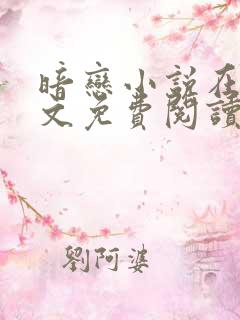 暗戀小說在
文免費閱讀
劉阿婆